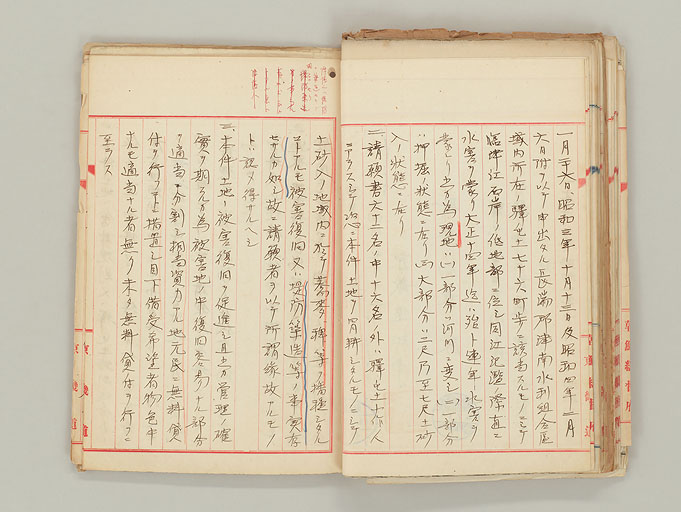 一月二十六日、昭和三年十月十二日及昭和四年二月
六日附ヲ以テ申出タル長湍郡津南水利組合區
域内所在驛屯土七十六町歩ニ該當スルモノニシテ
臨津江右岸ノ低地部ニ位シ同江氾濫ノ際直ニ
水害ヲ蒙リ大正十四年迄ハ殆ト連年水害ヲ
蒙リ之カ為現地ハ(一)一部分ハ河川ニ変シ(二)一部分
ハ押堀ノ状態ニ在リ(三)大部分ハ二尺乃至七尺土砂
入ノ状態ニ在リ
二、請願書六十二名ノ中十六名ノ外ハ驛屯土小作人
ニアラスシテ恣ニ本件土地ヲ冒耕シタルモノニシテ
土砂入ノ地域内ニ於テ蕎麥、稗等ヲ播種シタル
コトアルモ被害復旧又ハ堤防築造等ノ事実存
セサルカ如シ故ニ請願者ヲ以テ所謂縁故アルモノ
ト認メ得サルヘシ
三、本件土地ノ被害復旧ヲ促進シ且之カ管理ノ確
實ヲ期スル為被害地ノ中復旧容易ナル部分
ヲ適当ニ分割シ相当資力アル地元民ニ無料貸
付ヲ行フコトニ措置シ目下借受希望者物色中
ナルモ適当ナル者無ク未タ無料貸付ヲ行フニ
至ラス